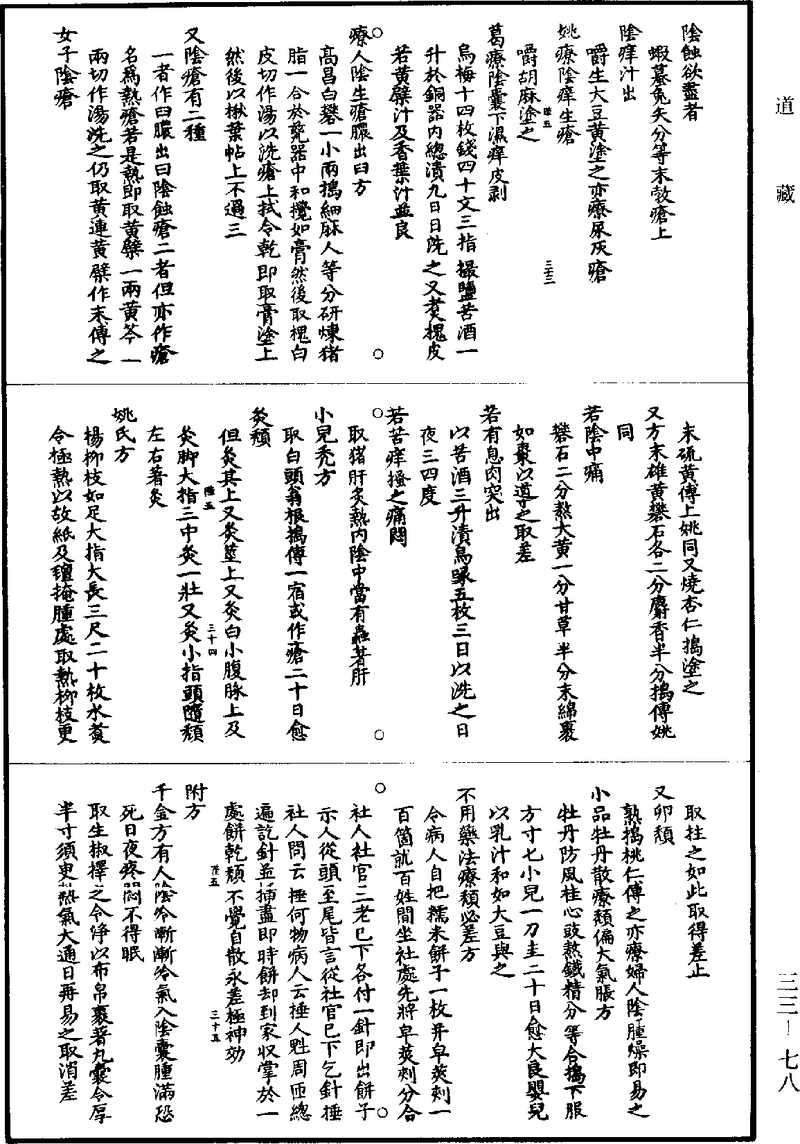 道藏
陰蝕欲盡者
蝦蟇兔矢分等末敷瘡上
陰痒汁出
嚼生大豆黄塗之亦療尿灰瘡
姚療陰痒生瘡
嚼胡麻塗之
葛療陰囊下濕痒皮剥
烏梅十四枚錢四十文三指撮鹽苦酒一
升於銅器內總漬九日日洗之又煑槐皮
若黄蘗汁及香葉汁並良
療人陰生瘡膿出臼方
高昌白礬一小兩搗細麻人等分研煉猪
脂一合於甆器中和攪如膏然後取槐白
皮切作湯以洗瘡上拭令乾即取膏塗上
然後以楸葉帖上不過三
又陰瘡有二種
一者作臼膿出曰陰蝕瘡二者但亦作瘡
名爲熱瘡若是熱即取黄蘗一兩黄芩一
兩切作湯洗之仍取黄連黄蘗作末傅之
女子陰瘡
末硫黄傅上姚同又燒杏仁搗塗之
又方末雄黄礬石各二分麝香半分搗傅姚
同
若陰中痛
礬石二分熬大黄一分甘草半分末綿裹
如棗以導之取差
若有息肉突出
以苦酒三升漬烏喙五枚三日以洗之日
夜三四度
若苦痒搔之痛悶
取猪肝炙熱內陰中當有蟲著肝
小兒禿方
取白頭翁根搗傅一宿或作瘡二十日愈
灸㿗
但灸其上又灸莖上又灸白小腹脉上及
灸脚大指三中灸一壯又灸小指頭隨㿗
左右著灸
姚氏方
楊柳枝如足大指大長三尺二十枚水煑
令極熱以故紙及氊掩腫處取熱柳枝更
取拄之如此取得差止
又卵㿗
熟搗桃仁傅之亦療婦人陰腫燥即易之
小品牡丹散療㿗偏大氣脹方
牡丹防風桂心豉熬鐵精分等合搗下服
方寸七小兒一刀圭二十日愈大良嬰兒
以乳汁和如大豆與之
不用藥法療㿗必差方
令病人自把糯米餅子一枚并皁莢刾一
百箇就百姓間坐社處先將皁莢刾分合
社人社官三老巳下各付一針即出餅子
示人從頭至尾皆言從社官巳下乞針捶
社人問云捶何物病人云捶人魁周匝總
遍訖針並插盡即時餅却到家収掌於一
處餅乾㿗不覺自散永差極神効
附方
千金方有人陰冷漸漸冷氣入陰囊腫滿恐
死日夜疼悶不得眠
取生椒擇之令淨以布帛裹著丸囊令厚
半寸須臾熱氣大通日再易之取消差
三三—七八
陰五
三十三
陰五
三十四
陰五
三十五